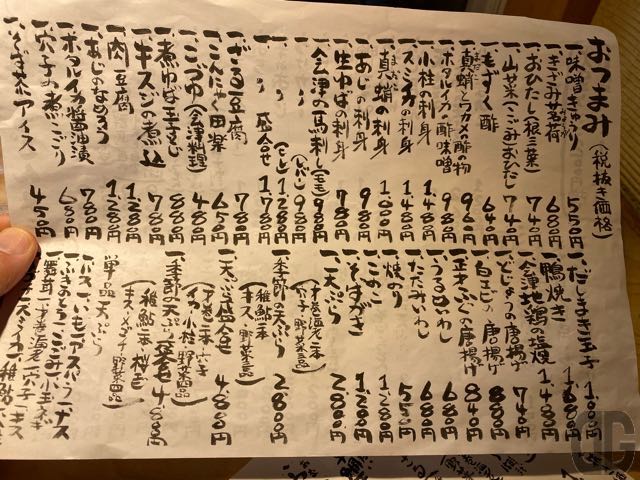 おつまみ(税抜き価格)
一、味噌きゅうり 550円
一、きざみ茗荷 680円
一、おひたし(根三葉) 740円
一、山菜(こごみおひたし 740円
一、もずく酢 640円
一、真蛸とワカメの酢の物 960円
一、ホタルイカの酢味噌 980円
一、小柱の刺身 1,480円
一、スミイカの刺身 1,480円
一、真蛸の刺身 1,000円
一、あじの刺身 980円
一、生ゆばの刺身 780円
一、会津の馬刺し(モモ) 980円
一、〃 (レバー) 980円
一、〃 (ヒレ) 1,280円
一、〃 盛合せ 1,780円
一、ざる豆腐 780円
一、こんにゃく田楽 650円
一、こづゆ(会津料理) 480円
一、煮ゆば玉子とじ 880円
一、牛スジの煮込 1,180円
一、肉豆腐 1,280円
一、あじのなめろう 780円
一、ホタルイカ醤油漬 680円
一、穴子の煮こごり 780円
アイス 450円
一、だしまき玉子 1,000円
一、鴨焼き 1,680円
一、会津地鶏の塩焼 1,480円
一、どじょうの唐揚げ 740円
一、白エビの唐揚げ 880円
一、正才ふぐの唐揚げ 840円
一、うるめいわし 680円
一、たたみいわし 680円
一、焼のり 550円
一、そばがき 1,200円
一、天ぷら 2,800円
(才巻海老二本
穴子 野菜三品)
一、季節の天ぷら 2,800円
(稚鮎二本
キス 野菜三品)
一、天ぷら盛合せ 4,800円
一、季節の天ぷら盛合せ 4,800円
単品天ぷら